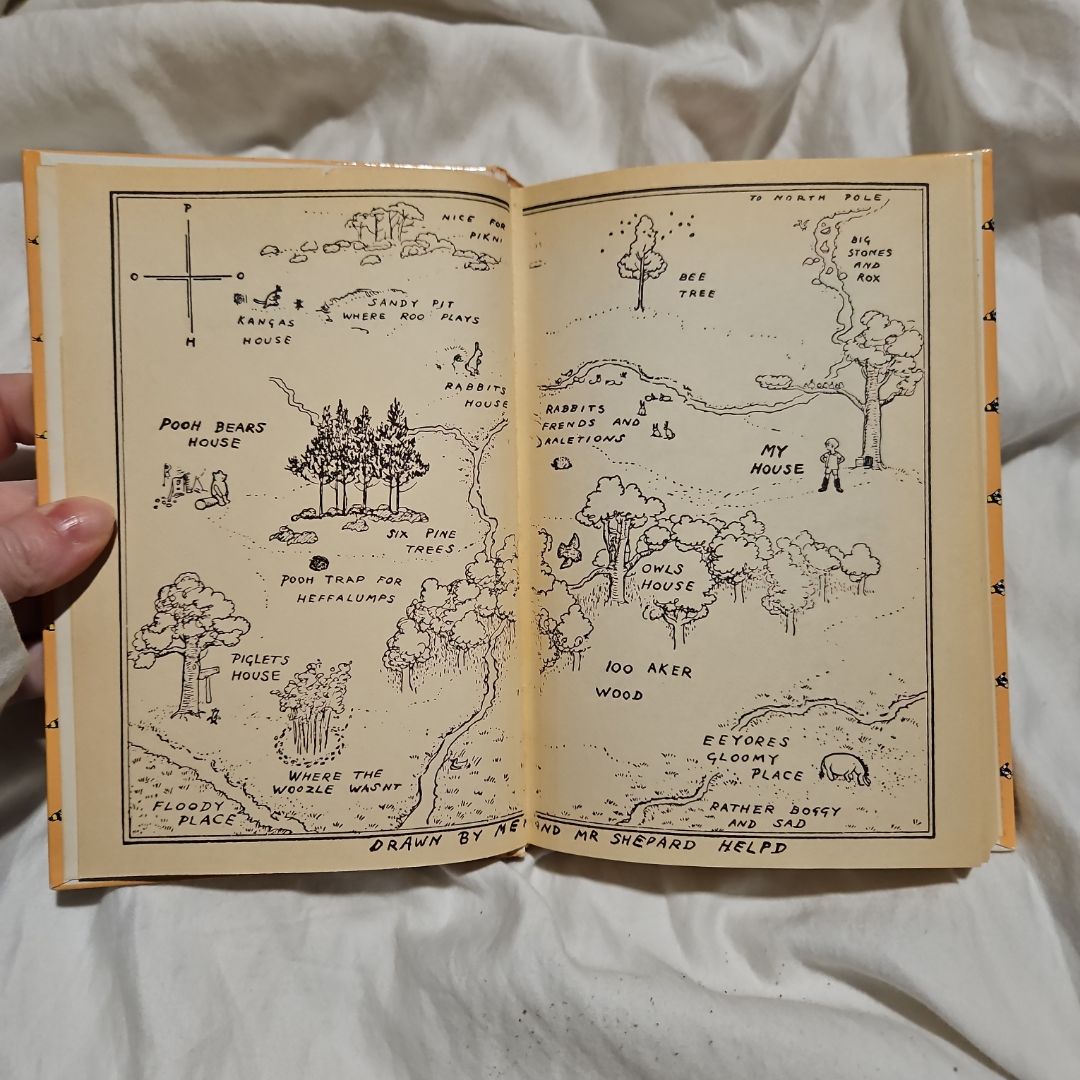 P
O O
H
NICE FOR
PIKNI
KANGAS
HOUSE
SANDY PIT
WHERE ROO PLAYS
RABBITS
HOUSE
POOH BEARS
HOUSE
SIX PINE
TREES
POOH TRAP FOR
HEFFALUMPS
PIGLETS
HOUSE
WHERE THE
WOOZLE WASNT
FLOODY
PLACE
TO NORTH POLE
BIG
STONES
AND
ROX
BEE
TREE
RABBITS
FRENDS AND
RALETIONS
MY
HOUSE
OWLS
HOUSE
100 AKER
WOOD
EEYORES
GLOOMY
PLACE
RATHER BOGGY
AND SAD
DRAWN BY ME AND MR SHEPARD HELPD